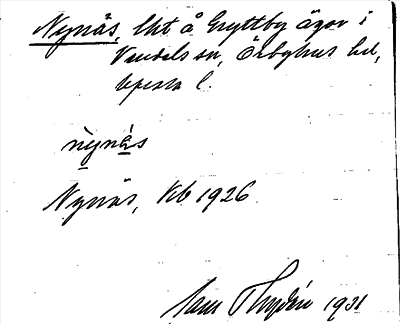 Nynäs, lht å Gryttby ägor i
Vendels sn, Örbyhus hd,
Uppsala l.
nỳnás
Nynäs, Kb 1926
1931